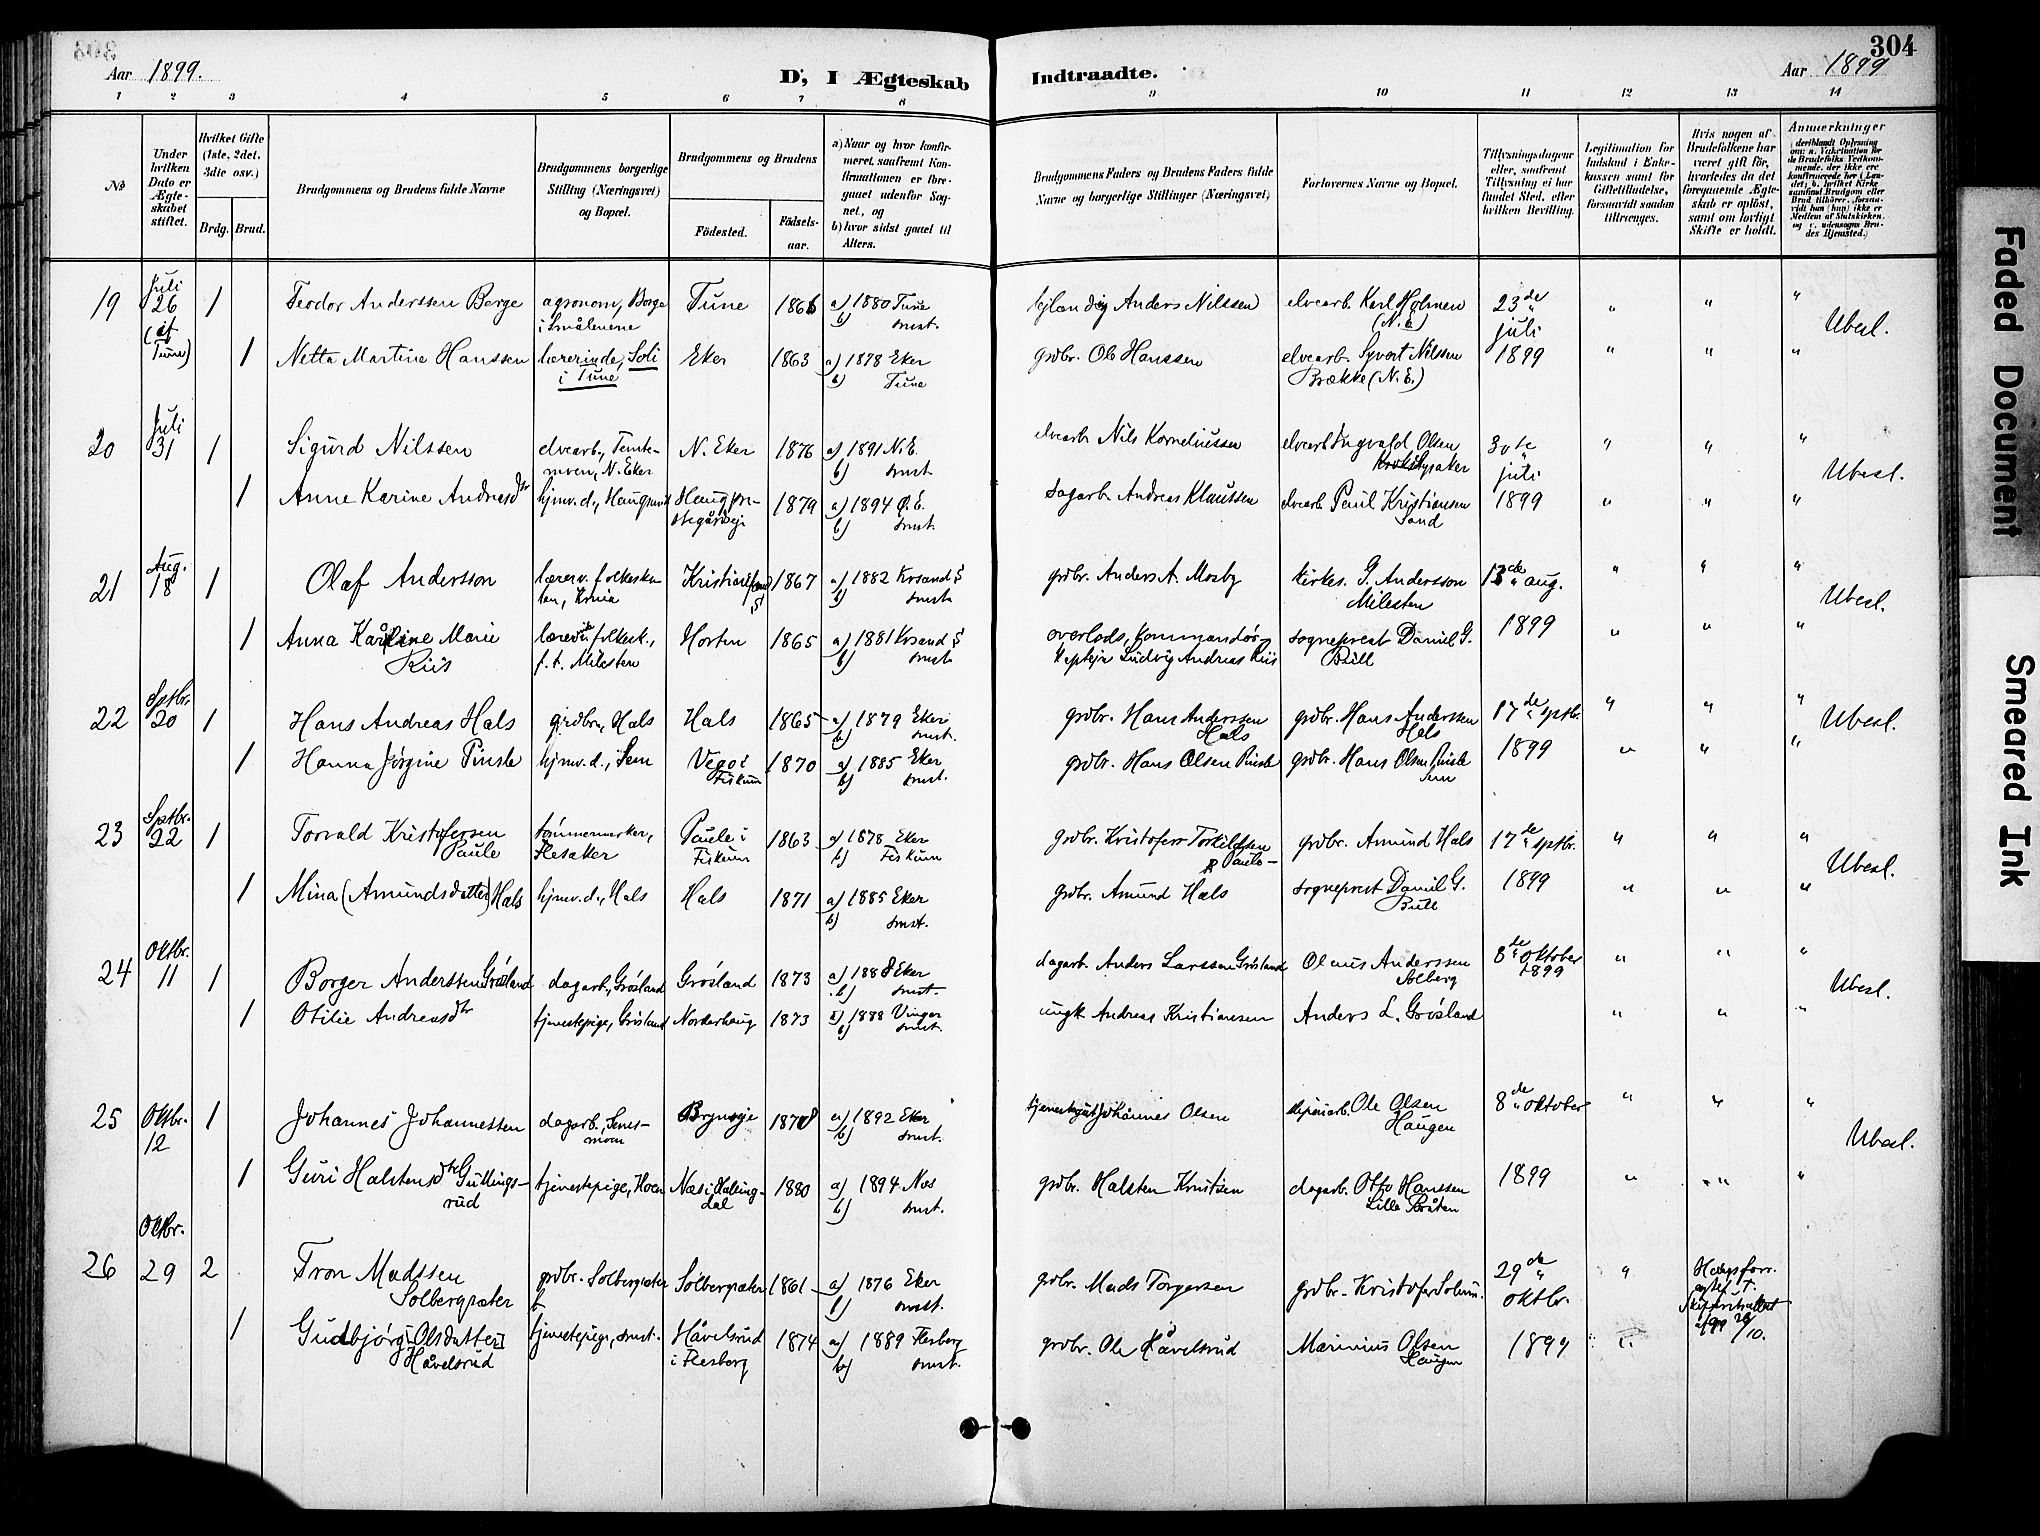 304
Aar 1899.
D, I Ægteskab Indtraadte.
Aar 1899
1 2 3 4 5 6 7 8 9 10 11 12 13 14
No
Under hvilken Dato er Ægteskabet stiftet.
Hvilket Gifte (1ste, 2det, 3die osv.)
Brdg. Brud.
Brudgommens og Brudens fulde Navne
Brudgommens borgerlige Stilling (Næringsvei) og Bopæl.
Brudgommens og Brudens
Födested.
Födselsaar.
a) Naar og hvor konfirmeret, saafremt Konfirmationen er foregaaet udenfor Sognet, og
b) hvor sidst gaaet til Alters.
Brudgommens Faders og Brudens Faders fulde Navne og borgerlige Stillinger (Næringsvei)
Forlovernes Navne og Bopæl.
Tillysningsdagene eller, saafremt Tillysning ei har fundet Sted, efter hvilken Bevilling.
Legitimation for Indskud i Enkekassen samt for Giftetilladelse, forsaavidt saadan tiltrænges.
Hvis nogen af Brudefolkene har været gift för, hvorledes da det foregaaende Ægteskab er oplöst, samt om lovligt Skifte er holdt.
Anmerkninger
19 Juli 26 (if Tune) 1 Teodor Anderssen Borge agronom, Borge i Smålenene Tune 1866 a) 1880 Tune b) smst. Anders Nilssen elvearb. Karl Holmen (N.E) 23de juli " " " Ubesl.
1 Netta Martine Hanssen lærerinde, Soli i Tune Eker 1863 a) 1878 Eker b) Tune grdbr. Ole Hanssen elvearb. Syvert Nilssen Brække (N.E.) 1899 " " "
20 Juli 31 1 Sigurd Nilssen elvearb., N. Eker N. Eker 1876 a) 1891 N.E. b) smst. elvearb. Nils Korneliussen elvearb. Ingvald Olsen 30te juli " " " Ubesl.
1 Anne Karine Andreasdtr hjmv.d., Haugsund 1879 a) 1894 Ø.E. b) smst. sagarb. Andreas Klaussen elvearb. Paul Kristiansen Sand 1899 " " "
21 Aug. 18 1 Olaf Andersson lærer v. folkeskolen, Kr.nia Kristianssand S 1867 a) 1882 Krsand S b) smst. grdbr. Anders A. Mosby kirkes. G. Andersson Milesten 13de aug. " " " Ubesl.
1 Anna Kårline Marie Riis folkesk., f.t. Milesten Horten 1865 a) 1881 Krsand S b) smst. overlods, Kommandør-kaptein Ludvig Andreas Riis sogneprest Daniel G. Bull 1899 " " "
22 Sptbr. 20 1 Hans Andreas Hals grdbr., Hals Hals 1865 a) 1879 Eker b) smst. grdbr. Hans Anderssen Hals grdbr. Hans Anderssen Hals 17de sptbr. " " " Ubesl.
1 Hanna Jørgine Pinsle hjmv.d., Sem Fiskum 1870 a) 1885 Eker b) smst. grdbr. Hans Olsen Pinsle grdbr. Hans Olsen Pinsle Sem 1899 " " "
23 Sptbr. 22 1 Torvald Kristofersen Paule tømmermerker, Flesaker Paule i Fiskum 1863 a) 1878 Eker b) Fiskum grdbr. Kristofer Torkildsen Paule grdbr. Amund Hals 17de sptbr. " " " Ubesl.
1 Mina (Amundsdatter) Hals hjmv.d., Hals Hals 1871 a) 1885 Eker b) smst. grdbr. Amund Hals sogneprest Daniel G. Bull 1899 " " "
24 Oktbr. 11 1 Borger Anderssen Grøsland dagarb., Grøsland Grøsland 1873 a) 1888 Eker b) smst. dagarb. Anders Larssen Grøsland Olenus Anderssen Solberg 8de oktober 1899 " " " Ubesl.
1 Otilie Andreasdtr tjenestepige, Grøsland Norderhaug 1873 a) 1888 Vinger b) smst. ungk. Andreas Kristiansen Anders L. Grøsland " " "
25 Oktbr. 12 1 Johannes Johannessen dagarb., Semsmoen 1878 a) 1892 Eker b) smst. tjenestegut Johannes Olsen Ole Olsen Haugen 8de oktober " " " Ubesl.
1 Guri Halstensdtr Gullingsrud tjenestepige, Hoen Næs i Hallingdal 1880 a) 1894 Næs b) smst. grdbr. Halsten Knutsen dagarb. Otto Hanssen Lille Bråten 1899 " " "
26 Oktbr. 29 2 Tron Madssen Solbergsæter grdbr. Solbergsæter Solbergsæter 1861 a) 1876 Eker b) smst. grdbr. Mads Torgersen grdbr. Kristofer Solum. 29de oktbr. "
1 Gudbjørg [Olsdatter] Håvelsrud tjenestepige, smst. Håvelsrud i Flesberg 1874 a) 1889 Flesberg b) smst. grdbr. Ole Håvelsrud Marinius Olsen Haugen 1899 "
Faded Document
Smeared Ink